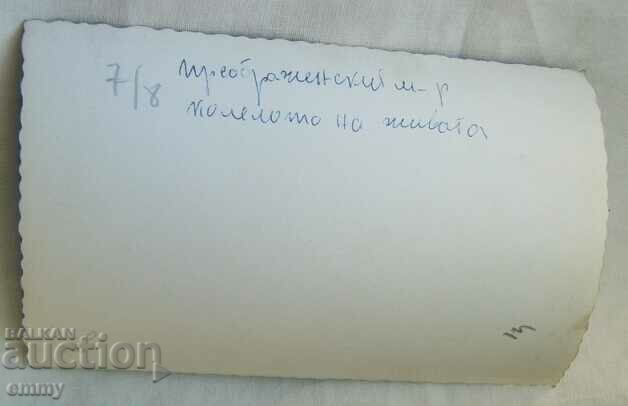 7/8 Преображенский м-р
колелото на живота
13
BALKAN
auction
emmy